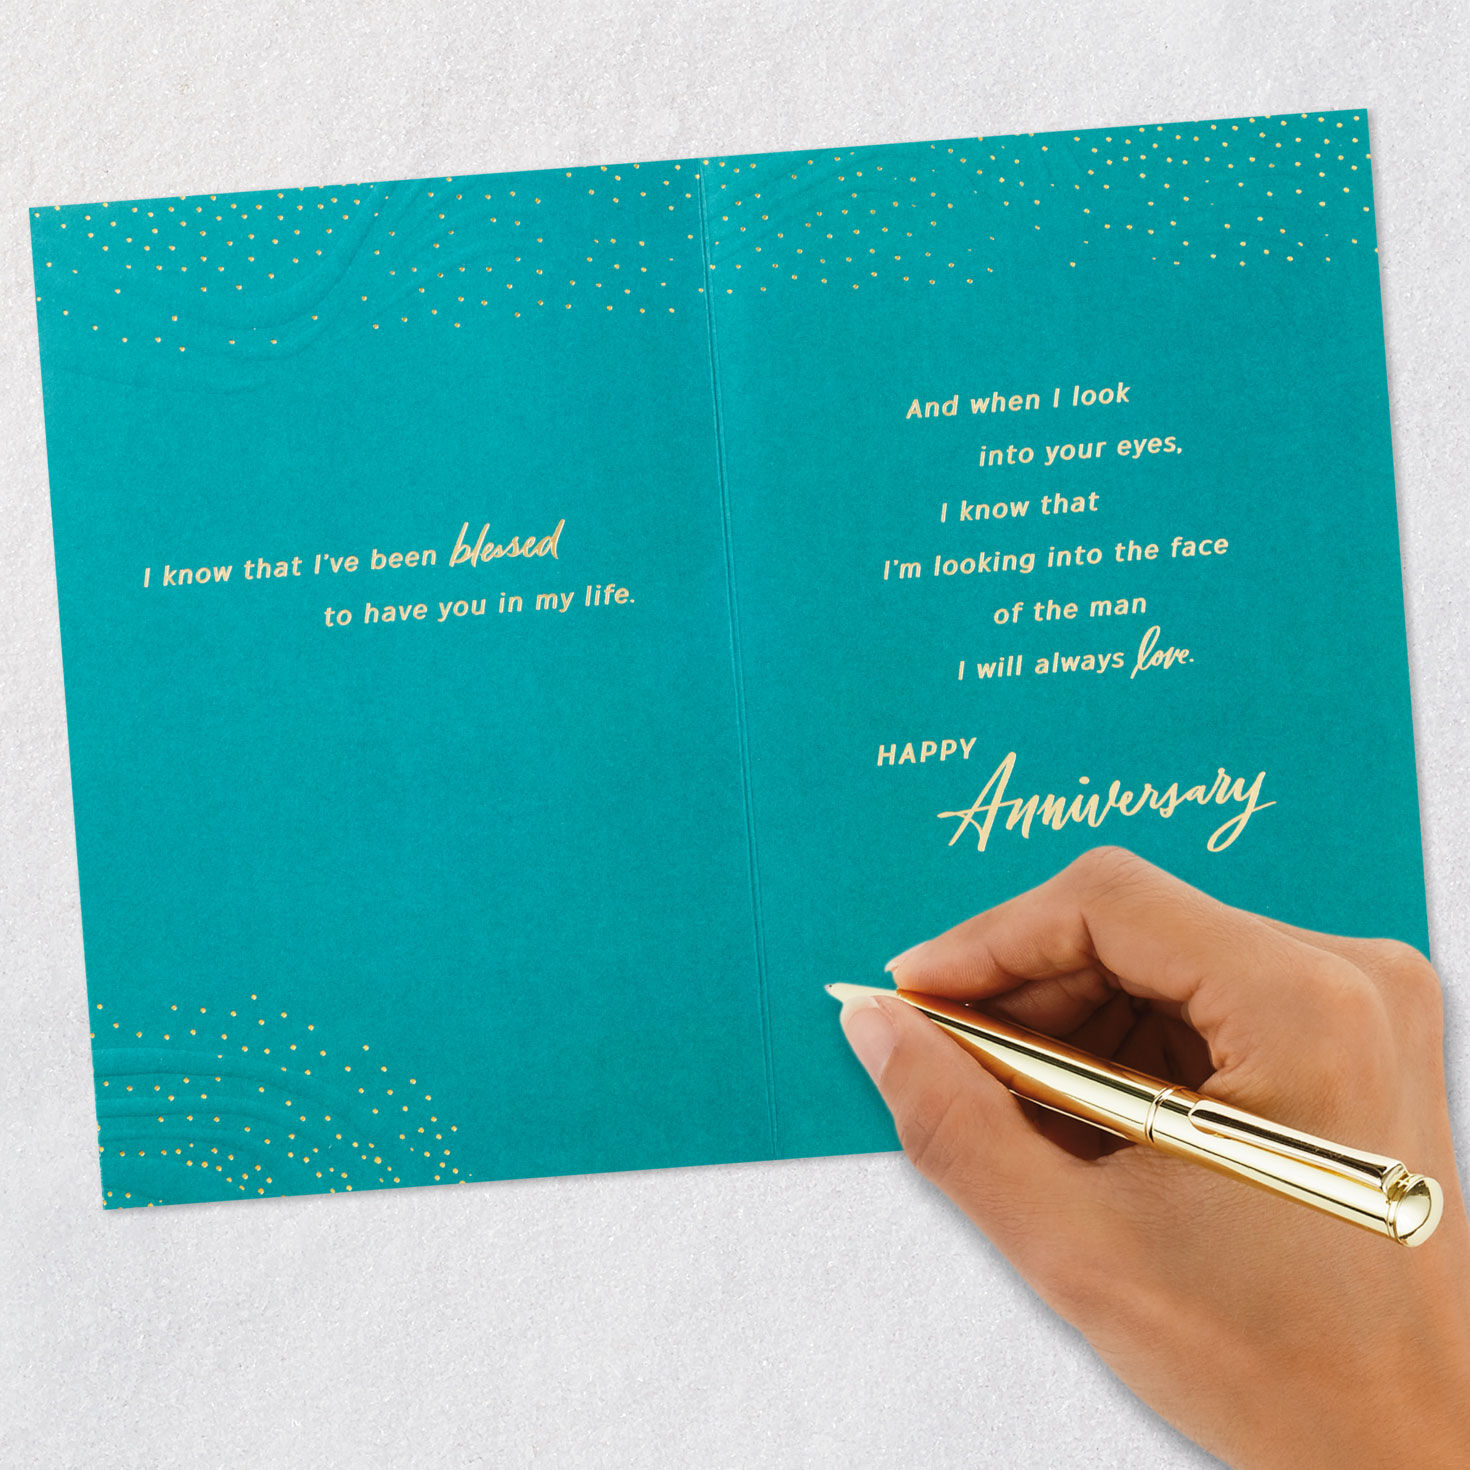 I know that I've been blessed
to have you in my life.
And when I look
into your eyes,
I know that
I'm looking into the face
of the man
I will always love.
HAPPY
Anniversary